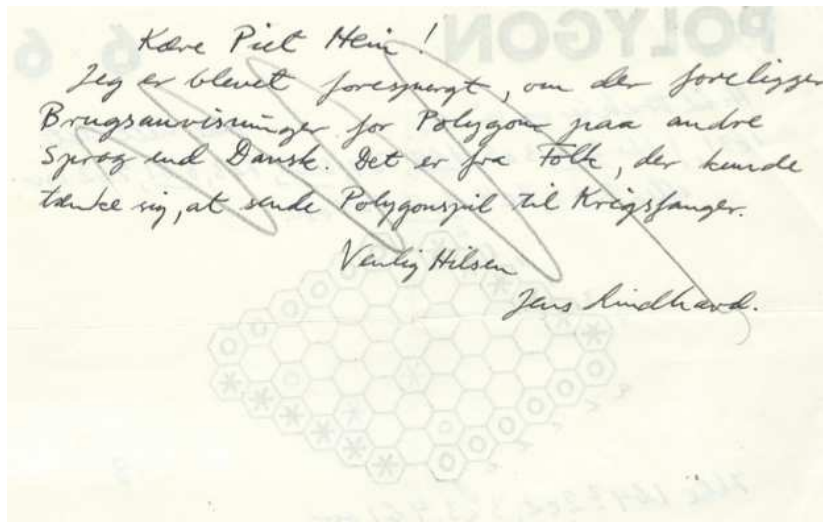 Kære Piet Hein!
Jeg er blevet forespurgt, om der foreligger
Brugsanvisninger for Polygon paa andre
Sprog end Dansk. Det er fra Folk, der kunde
tænke sig, at sende Polygonspil til Krigsfanger.
Venlig Hilsen
Jens Lindhard.
POLYGON
6 6